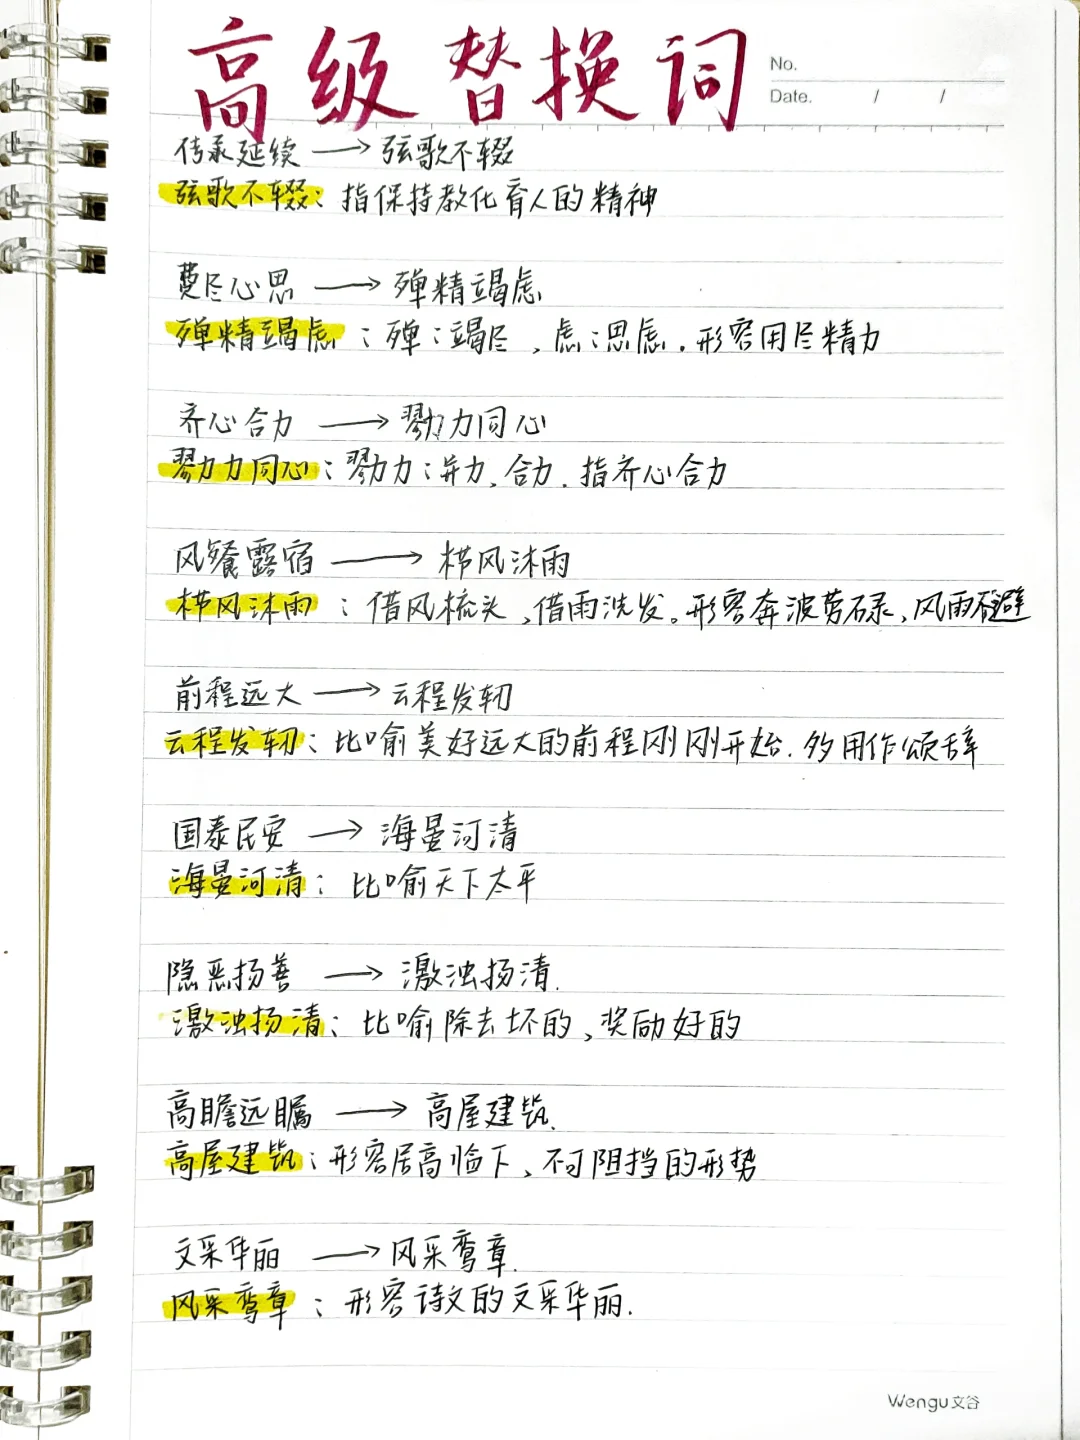 高级替换词
No.
Date. / /
传承延续 → 弦歌不辍
弦歌不辍：指保持教化育人的精神
费尽心思 → 殚精竭虑
殚精竭虑：殚：竭尽，虑：思虑。形容用尽精力
齐心合力 → 勠力同心
勠力同心：勠力：并力、合力．指齐心合力
风餐露宿 → 栉风沐雨
栉风沐雨：借风梳头，借雨洗发。形容奔波劳碌、风雨不避
前程远大 → 云程发轫
云程发轫：比喻美好远大的前程刚刚开始．多用作颂辞
国泰民安 → 海晏河清
海晏河清：比喻天下太平
隐恶扬善 → 激浊扬清．
激浊扬清：比喻除去坏的、奖励好的
高瞻远瞩 → 高屋建瓴．
高屋建瓴：形容居高临下、不可阻挡的形势
文采华丽 → 风采鸾章．
风采鸾章：形容诗文的文采华丽．
Wengu文谷